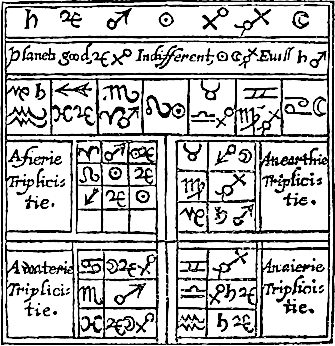 ♄ ♃ ♂ ☉ ♀ ☿ ☾
Planets good, ♃ ♀ Indifferent, ☉ ☾ ☿ Euill ♄ ♂
♑ ♄ ♐ ♏ ♌ ☉ ♉ ♊ ♋ ☾
♒ ♓ ♃ ♈ ♂ ♎ ♀ ♍ ☿
A fierie
Triplici-
tie.
♈ ♂ ☉ ♃
♌ ☉ ♃
♐ ♃ ☉
An earthie
Triplicis
tie.
♉
♍ ☿
♑ ♄ ♂
A waterie
Triplicis
tie.
♋ ☽ ♃ ♀
♏ ♂
♓ ♃ ☽ ♀
An aierie
Triplicis
tie.
♊ ☿
♎ ♀ ♄ ♃
♒ ♄ ♃